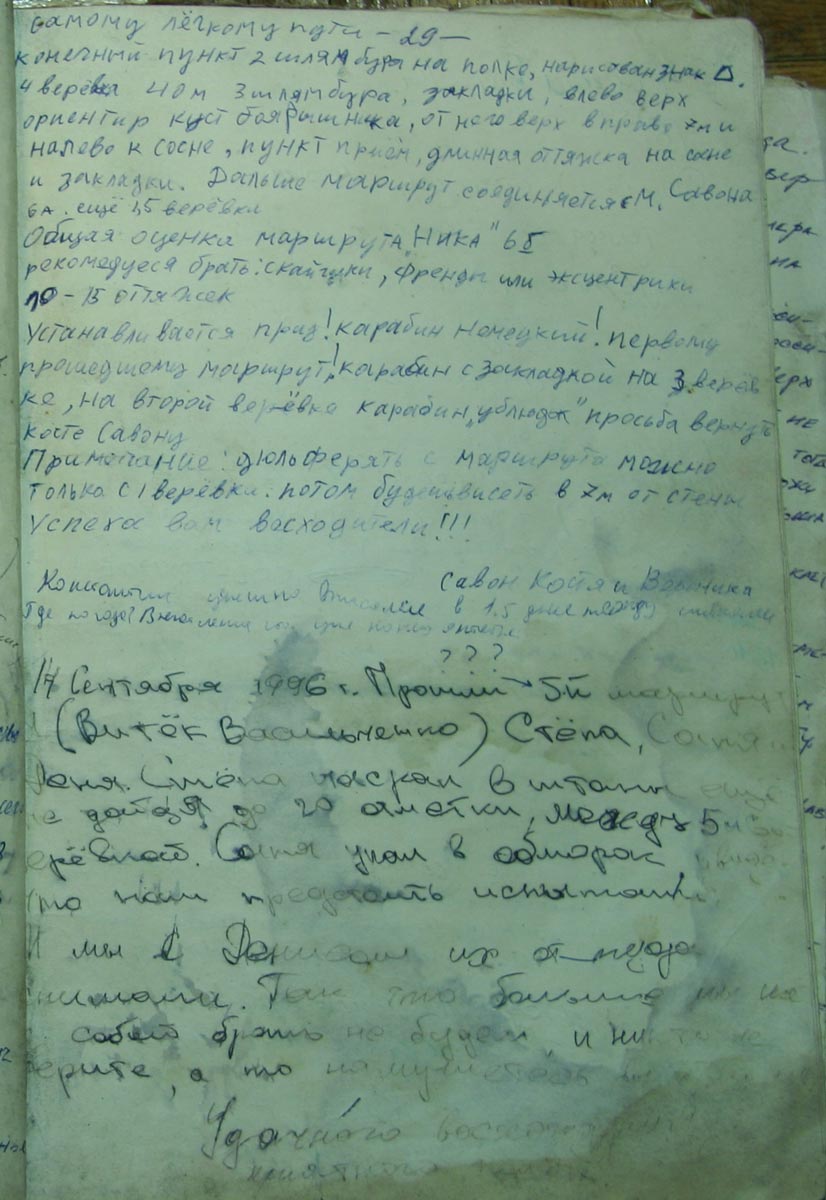 самому лёгкому пути – 29 –
конечный пункт 2 шлямбура на полке, нарисован знак Δ.
4 верёвка 40 м 3 шлямбура, закладки, влево верх
ориентир куст боярышника, от него верх вправо 7м и
налево к сосне, пункт приём, длинная оттяжка на сосне
и закладки. Дальше маршрут соединяется с М. Савона
6А. ещё 1,5 верёвки
Общая оценка маршрута „НИКА" 6Б
рекомедуеся брать: скайчуки, Френды или эксцентрики
10 – 15 оттяжек
Устанавливается приз! карабин Немецкий! первому
прошедшему маршрут! карабин с закладкой на 3 верёв
ке, на второй верёвке карабин „ублюдок" просьба вернуть
косте Савону
Примечание: дюльферять с маршрута можно
только с 1 верёвки. потом будеш висеть в 7м от стены
Успеха вам восходители!!!
Савон Костя и Вероника
в 1,5
Где погода?
???
17 Сентября 1996 г. Прошли 5й маршрут
(Витёк Васильченко) Стёпа, Состя
Деня. Стёпа насрал в штаны ещё
не дойдя до 20 отметки, между 5й
ерёвкой. Состя упал в обморок
что нам предстоить испытать
И мы с Денисом их от туда
снимали. Так что больше мы их
с собой брать не будем и
берите, а то намучаетесь
Удачного восхождения
приятного